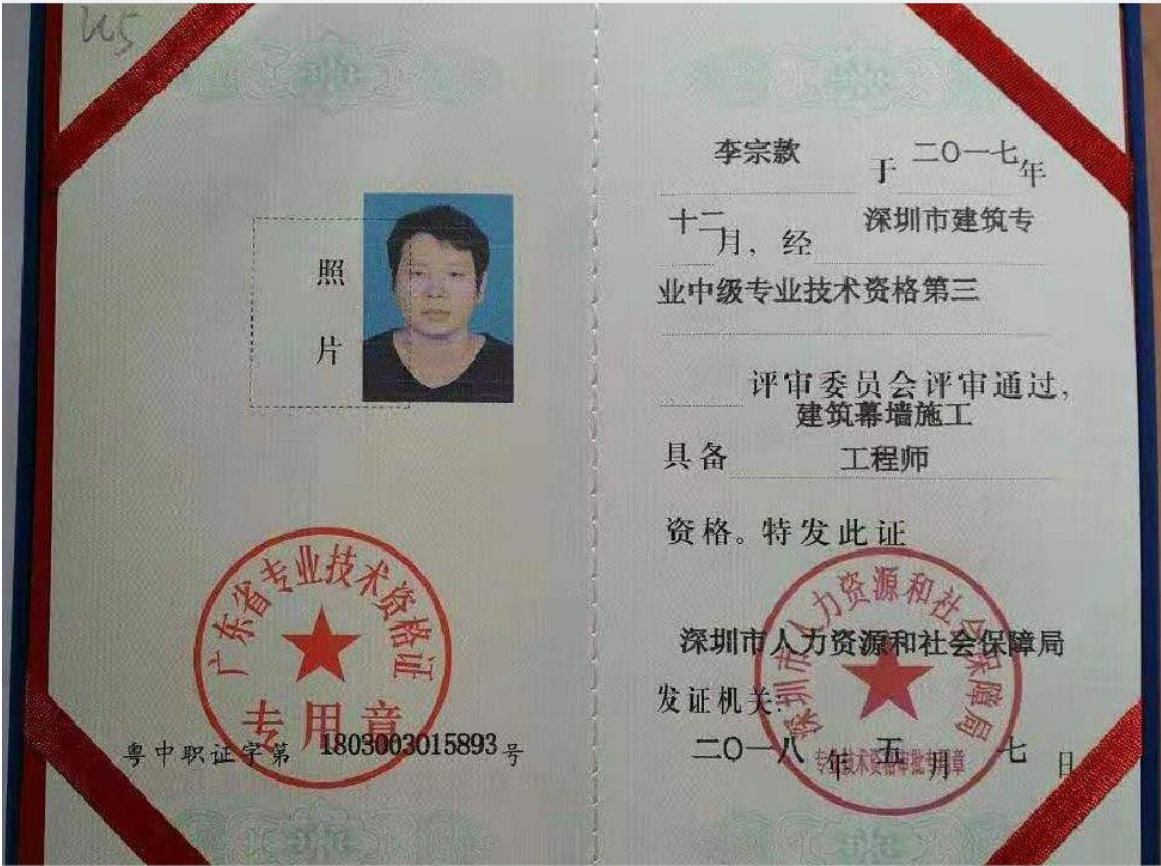 照
片
广东省专业技术资格证
专用章
粤中职证字第 1803003015893 号
李宗款 于 二〇一七年
十二月，经 深圳市建筑专
业中级专业技术资格第三
评审委员会评审通过，
建筑幕墙施工
具备 工程师
资格。特发此证
深圳市人力资源和社会保障局
深圳市人力资源和社会保障局
发证机关：
二〇一八年 五月 七日
专业技术资格审批专用章